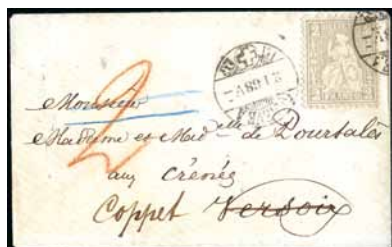 2
Monsieur
Madame et Mad elle de Pourtalès
aux Crénées
Coppet Versoix